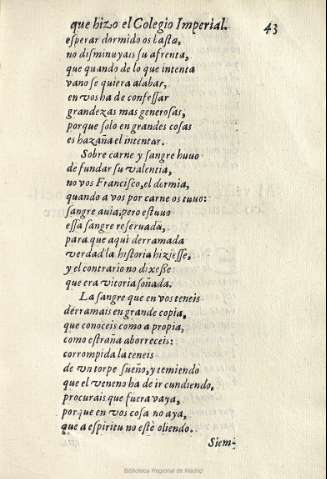 que hizo el Colegio Imperial. 43
esperar dormido os basta,
no disminuyais su afrenta,
que quando de lo que intenta
vano se quiera alabar,
en vos ha de confessar
grandezas mas generosas,
porque solo en grandes cosas
es hazaña el intentar.
Sobre carne y sangre huuo
de fundar su valentia,
no vos Francisco, el dormia,
quando a vos por carne os tuuo:
sangre auia, pero estuuo
essa sangre reseruada,
para que aqui derramada
verdad la historia hiziesse,
y el contrario no dixesse
que era vitoria soñada.
La sangre que en vos teneis
derramais en grande copia,
que conoceis como a propia,
como estraña aborreceis:
corrompida la teneis
de vn torpe sueño, y temiendo
que el veneno ha de ir cundiendo,
procurais que fuera vaya,
porque en vos cosa no aya,
que a espiritu no esté oliendo.
Siem-
Biblioteca Regional de Madrid